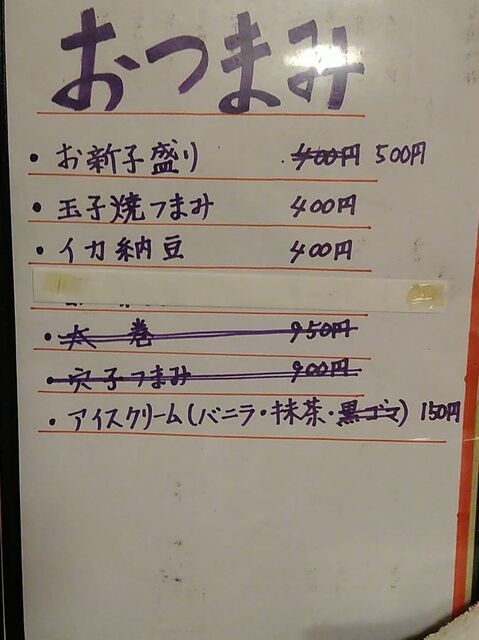 おつまみ
・お新子盛り 400円 500円
・玉子焼つまみ 400円
・イカ納豆 400円
・太巻 950円
・穴子つまみ 900円
・アイスクリーム(バニラ・抹茶・黒ゴマ) 150円